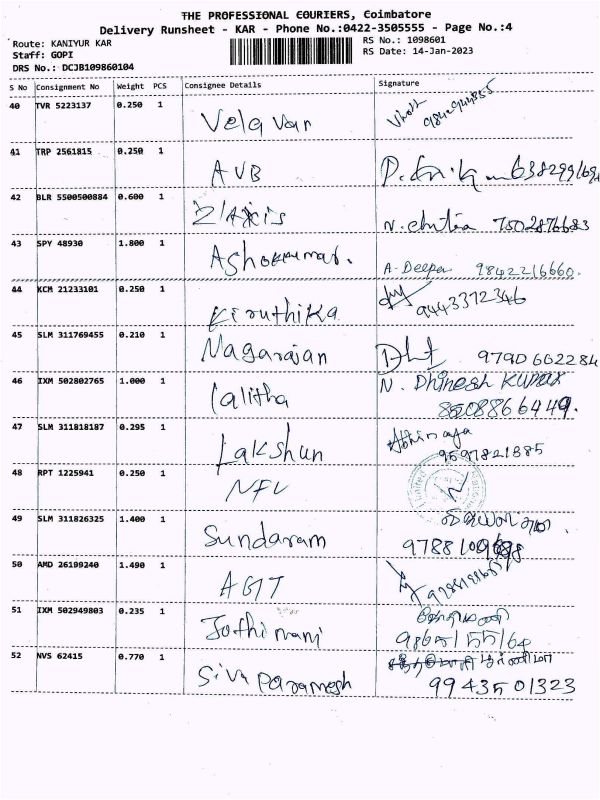 THE PROFESSIONAL COURIERS, Coimbatore
Delivery Runsheet - KAR - Phone No.:0422-3505555 - Page No.:4
Route: KANIYUR KAR
RS No.: 1098601
Staff: GOPI
RS Date: 14-Jan-2023
DRS No.: DCJB109860104
S No Consignment No Weight PCS Consignee Details Signature
40 TVR 5223137 0.250 1
Velavan
41 TRP 2561815 0.250 1
AVB
42 BLR 5500500884 0.600 1
N. chitra 7502876683
43 SPY 48930 1.800 1
Ashokkumar.
A. Deepa 9842216660.
44 KCM 21233101 0.250 1
Kiruthika 9443372346
45 SLM 311769455 0.210 1
Nagarajan 9790 662284
46 IXM 502802765 1.000 1
lalitha N. Dhinesh Kumar
8508866449.
47 SLM 311818187 0.295 1
Lakshun Abhinaya
9597821885
48 RPT 1225941 0.250 1
NFL
49 SLM 311826325 1.400 1
Sundaram
50 AMD 26199240 1.490 1
AGT
51 IXM 502949803 0.235 1
Jothimani
9865155164
52 NVS 62415 0.770 1
Siva Paramesh
99435 01323